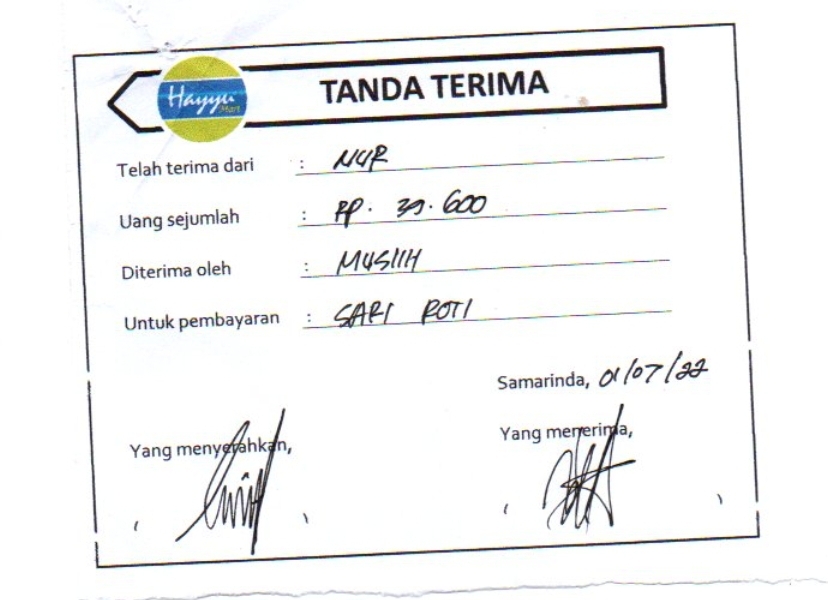 Hayyu Mart
TANDA TERIMA
Telah terima dari : NUR
Uang sejumlah : RP. 39.600
Diterima oleh : MUSLIH
Untuk pembayaran : SARI ROTI
Samarinda, 01/07/22
Yang menyerahkan,
Yang menerima,